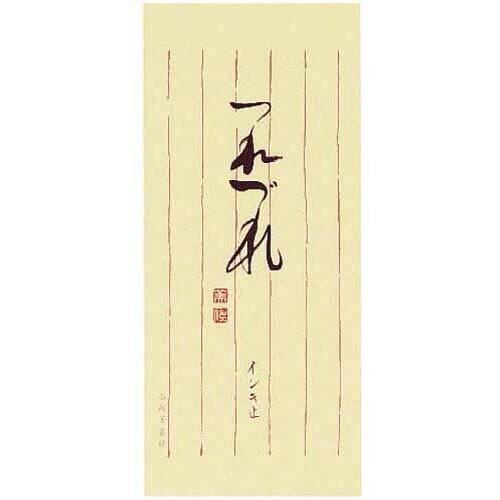 つれづれ
インキ止